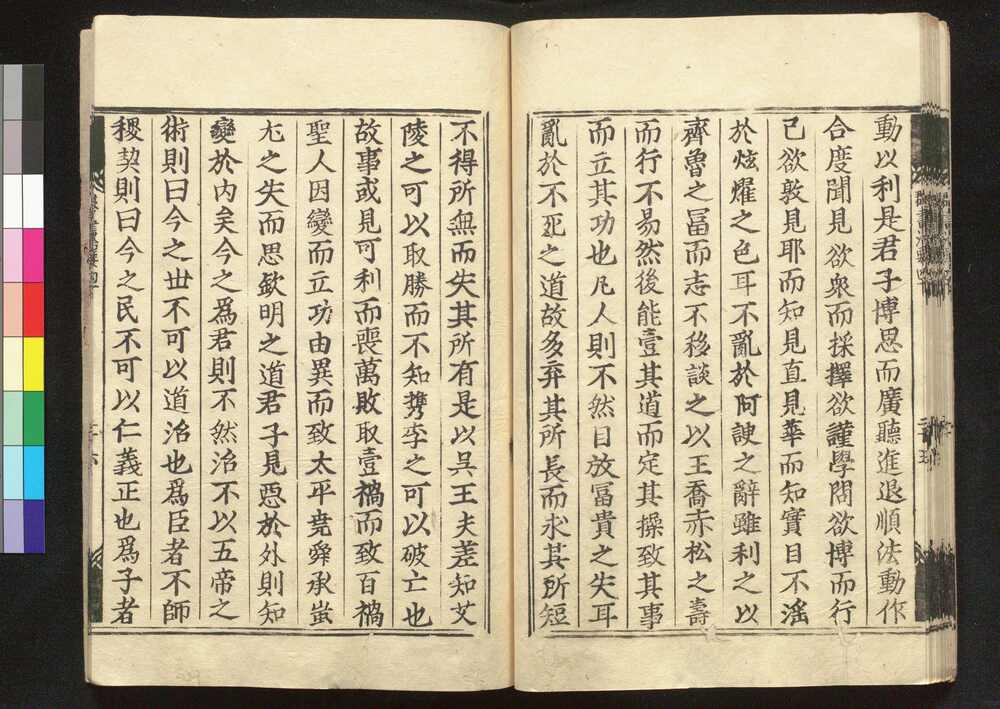 動以利是君子博思而廣聽進退順法動作
合度聞見欲衆而採擇欲謹學問欲博而行
己欲敦見耶而知見直見華而知實目不滛
於炫燿之色耳不亂於阿諛之辭雖利之以
齊魯之冨而志不移談之以王喬赤松之壽
而行不易然後能壹其道而定其操致其事
而立其功也凡人則不然目放冨貴之失耳
亂於不死之道故多弃其所長而求其所短
不得所無而失其所有是以吳王夫差知艾
陵之可以取勝而不知檇李之可以破亡也
故事或見可利而喪萬敗取壹禍而致百禍
聖人因變而立功由異而致太平堯舜承蚩
尤之失而思欽明之道君子見惡於外則知
變於内矣今之爲君則不然治不以五帝之
術則曰今之丗不可以道治也爲臣者不師
稷契則曰今之民不可以仁義正也爲子者